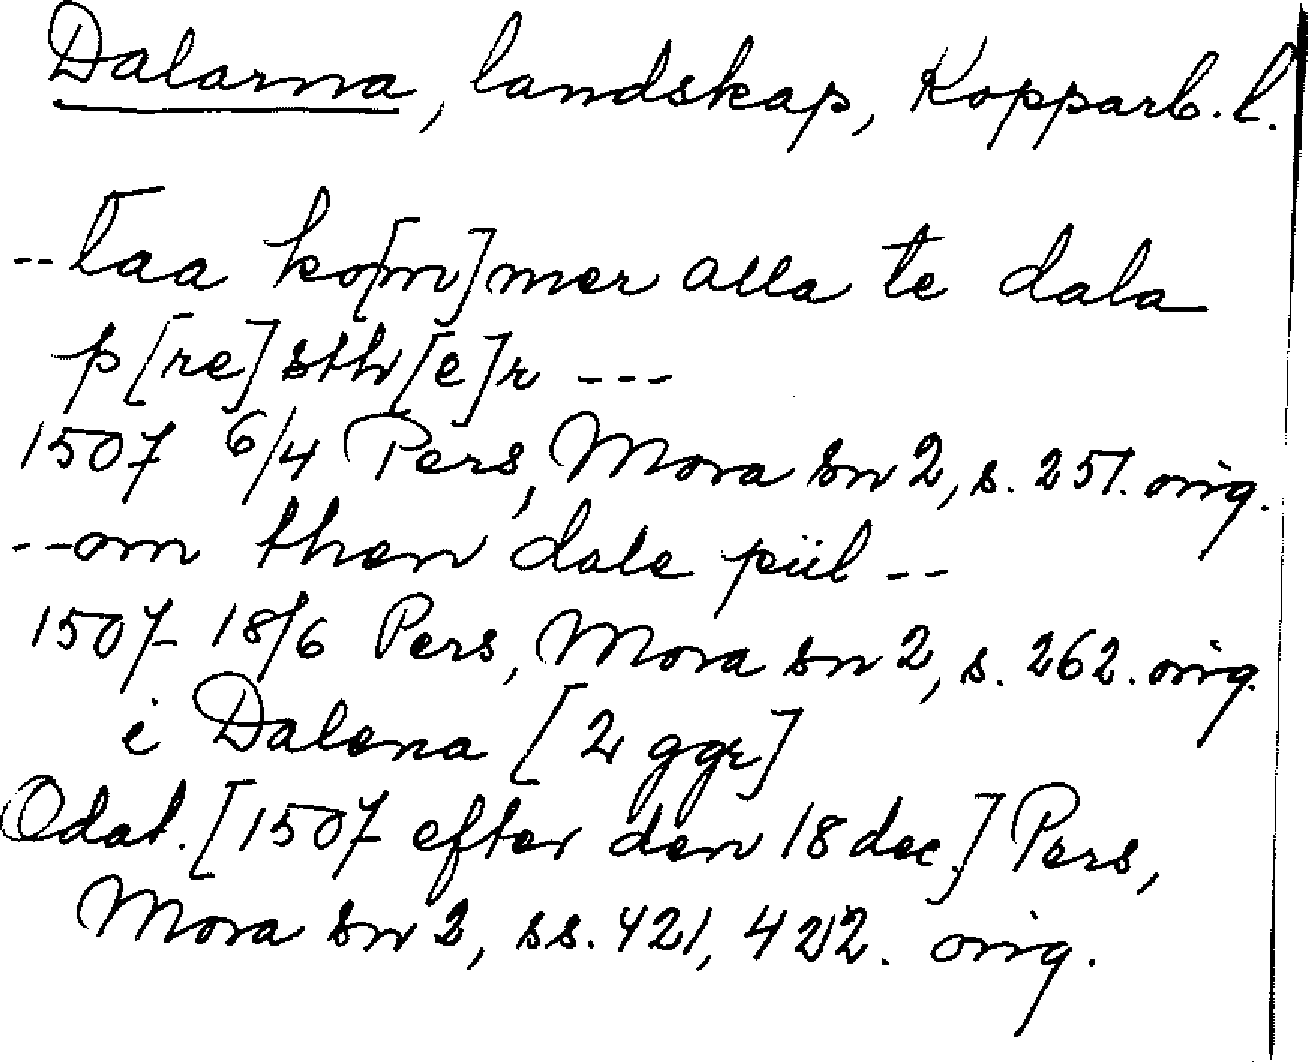 Dalarna, landskap, Kopparb. l.
-- taa ko[m]mer alla te dala
p[re]sth[e]r ---
1507 6/4 Pers, Mora sn 2, s. 251. orig.
-- om then dale piil --
1507 18/6 Pers, Mora sn 2, s. 262. orig.
i Dalena [2 ggr]
Odat. [1507 efter den 18 dec.] Pers,
Mora sn 2, ss. 421, 422. orig.